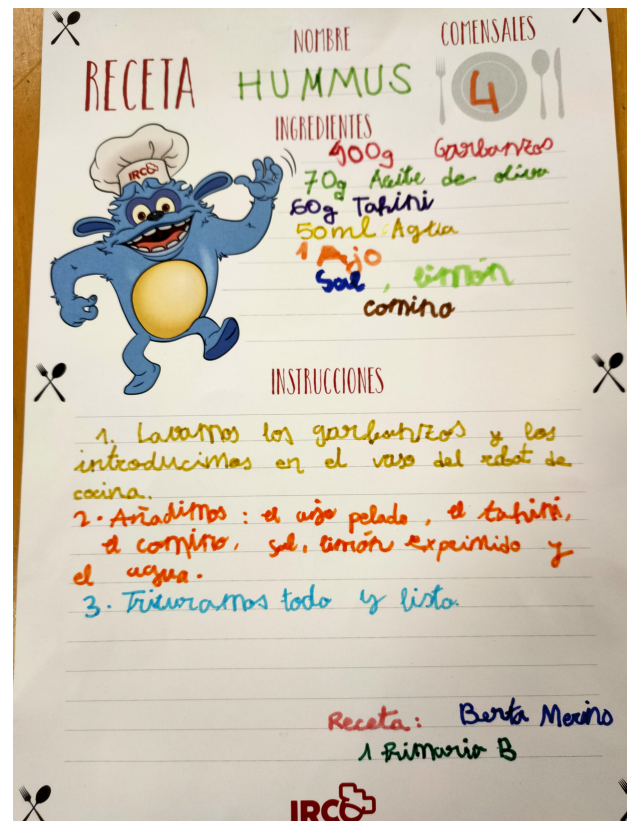 NOMBRE
COMENSALES
RECETA
HUMMUS
4
INGREDIENTES
IRCO
400g Garbanzos
70g Aceite de oliva
60g Tahini
50ml Agua
1 Ajo
Sal, limón
comino
INSTRUCCIONES
1. Lavamos los garbanzos y los
introducimos en el vaso del robot de
cocina.
2. Añadimos: el ajo pelado, el tahini,
el comino, sal, limón exprimido y
el agua.
3. Trituramos todo y listo.
Receta: Berta Merino
1 Primaria B
IRCO